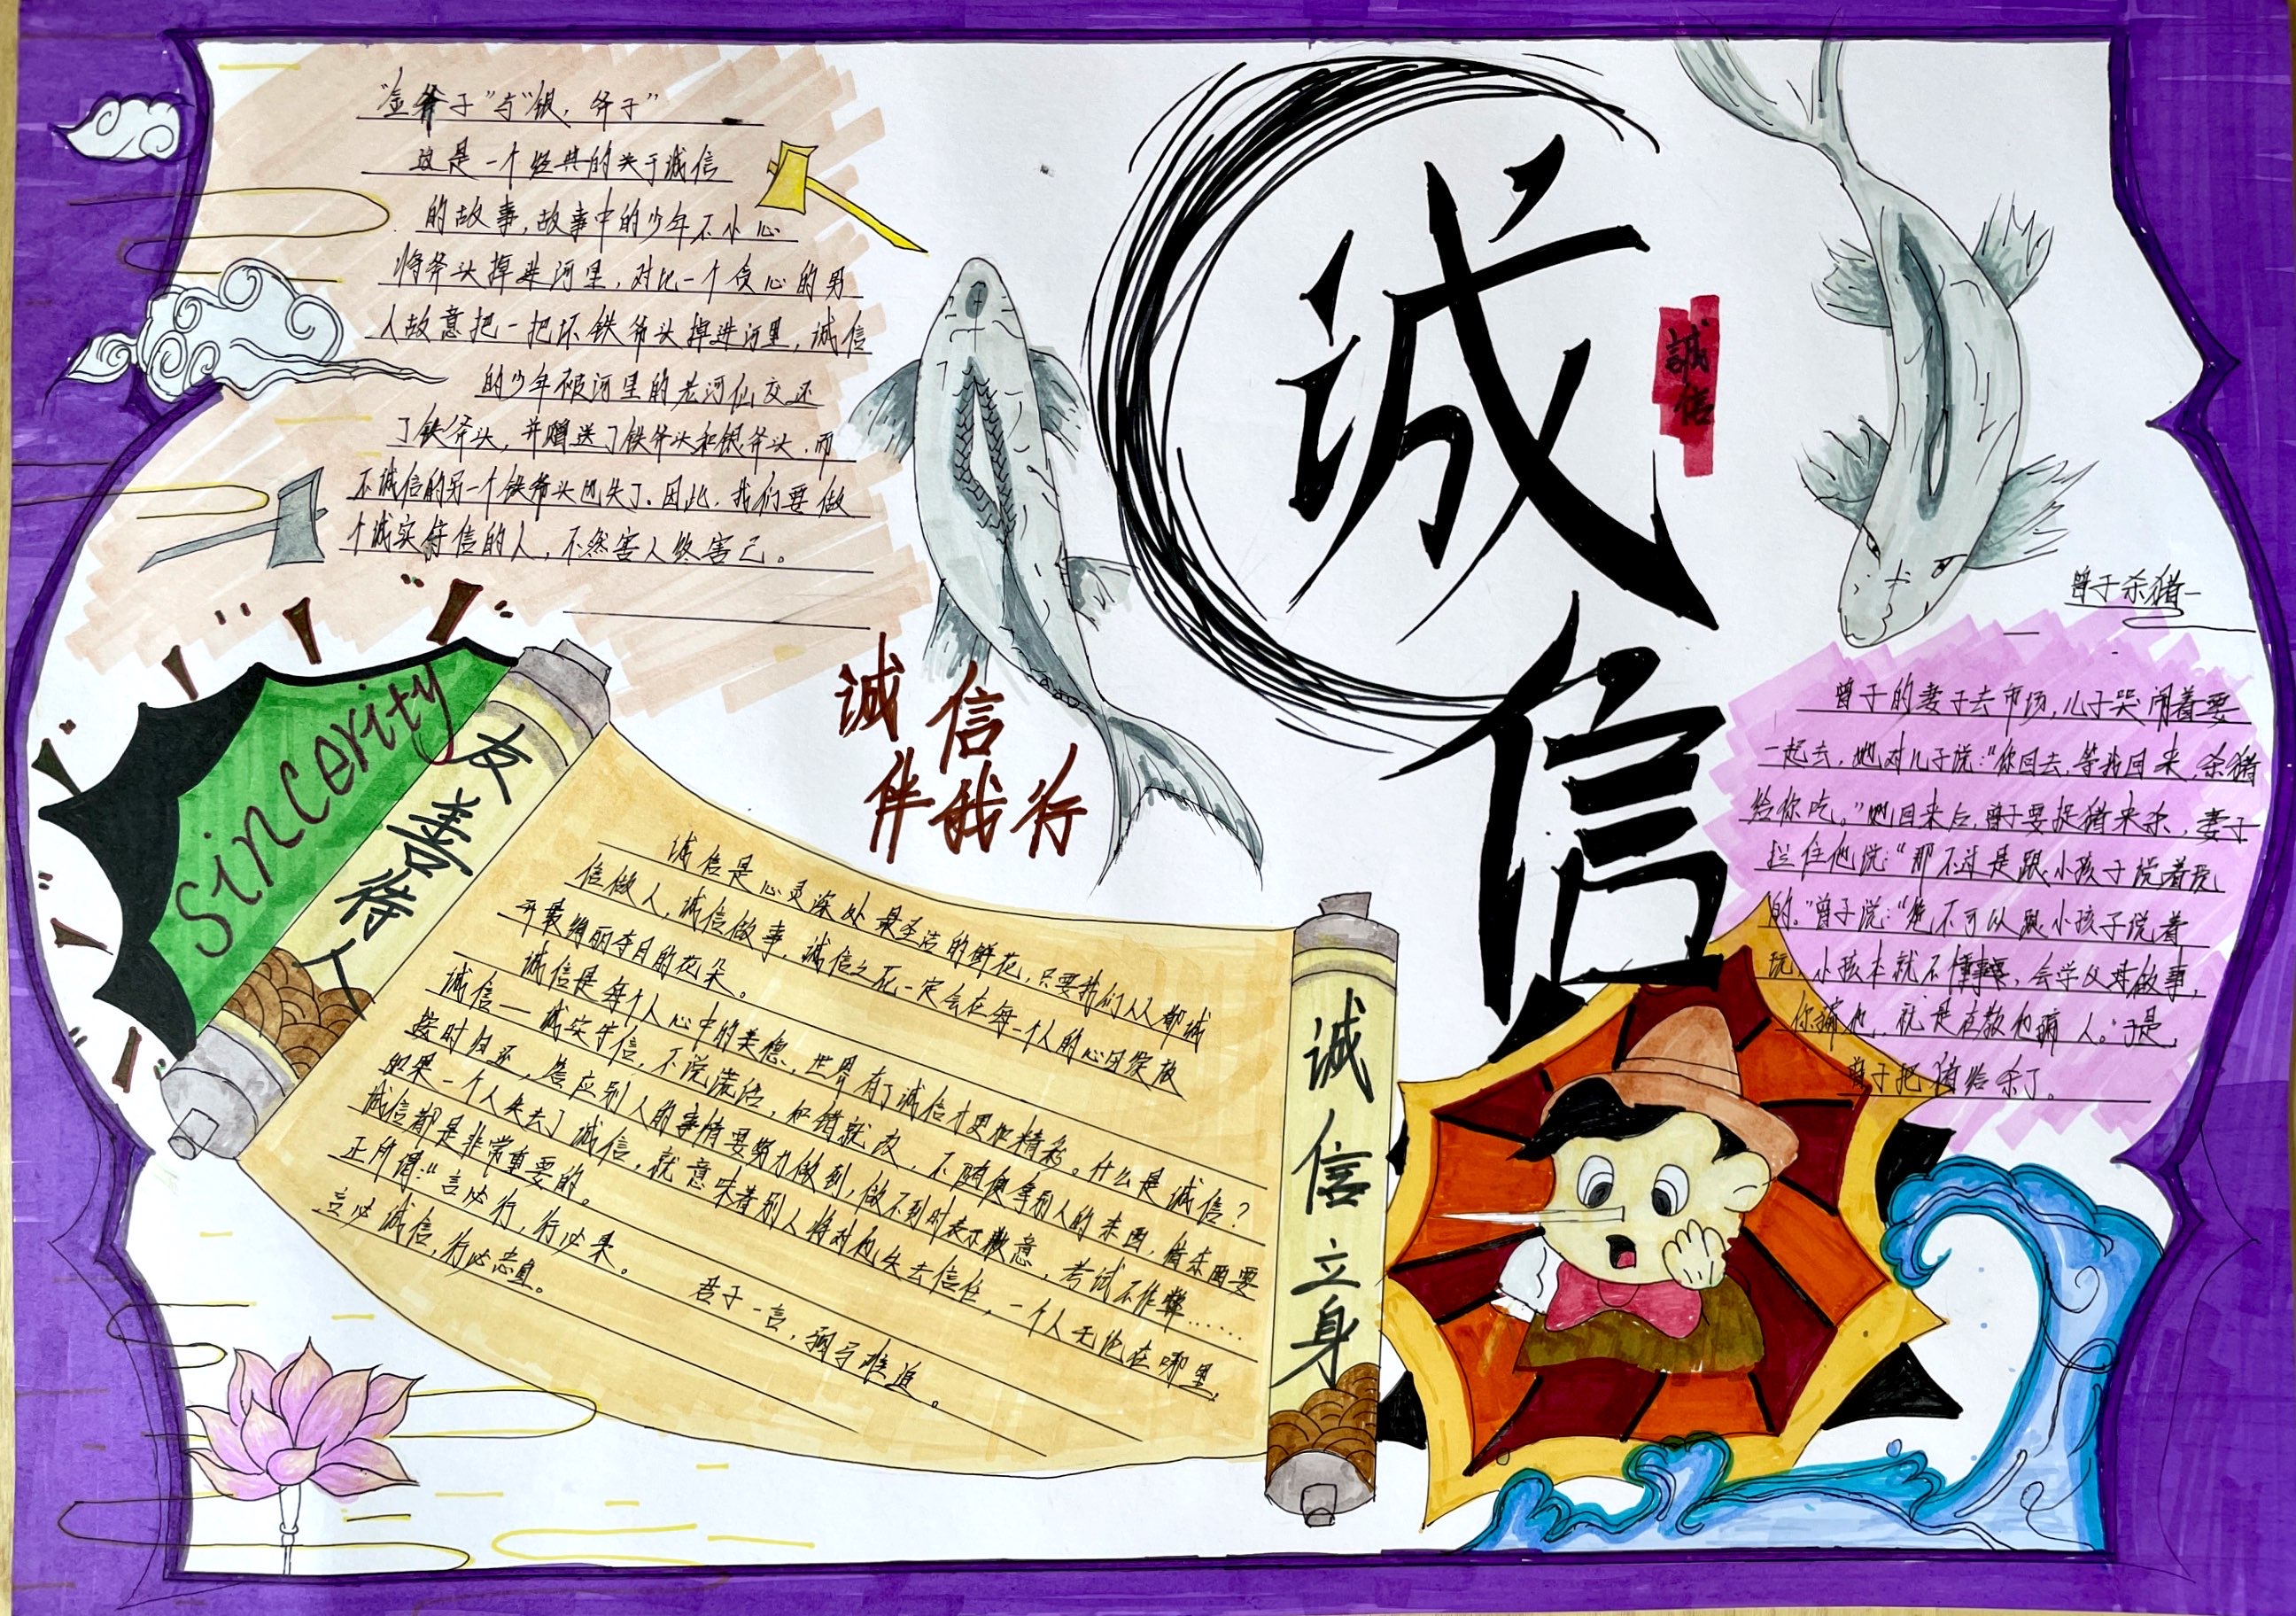 "金斧子"与"银，斧子"
这是一个经典的关于诚信
的故事，故事中的少年不小心
将斧头掉进河里，对比一个贪心的男
人故意把一把坏铁斧头掉进河里，诚信
的少年被河里的老河仙交还
了铁斧头，并赠送了铁斧头和银斧头，而
不诚信的另一个铁斧头也失了。因此，我们要做
个诚实守信的人，不然害人终害己。
诚
信
誠信
曾子杀猪
曾子的妻子去市场，儿子哭闹着要
一起去，她对儿子说："你回去，等我回来，杀猪
给你吃。"她回来后，曾子要捉猪来杀，妻子
拦住他说："那不过是跟小孩子说着玩
的。"曾子说："绝不可以跟小孩子说着
玩，小孩本就不懂事，会学父母做事，
你骗他，就是在教他骗人。"于是，
曾子把猪给杀了。
诚信
伴我行
Sincerity
友善待人
诚信是心灵深处最圣洁的鲜花，只要我们人人都诚
信做人，诚信做事，诚信之花一定会在每一个人的心田绽放
开最绚丽夺目的花朵。
诚信是每个人心中的美德，世界有了诚信才更加精彩。什么是诚信？
诚信——诚实守信，不说谎话，知错就改，不随便拿别人的东西，借东西要
按时归还，答应别人的事情要努力做到，做不到时表示歉意，考试不作弊……
如果一个人失去了诚信，就意味着别人将对他失去信任，一个人无论在哪里，
诚信都是非常重要的。
正所谓："言必行，行必果。
君子一言，驷马难追。
言必诚信，行必忠直。
诚信立身